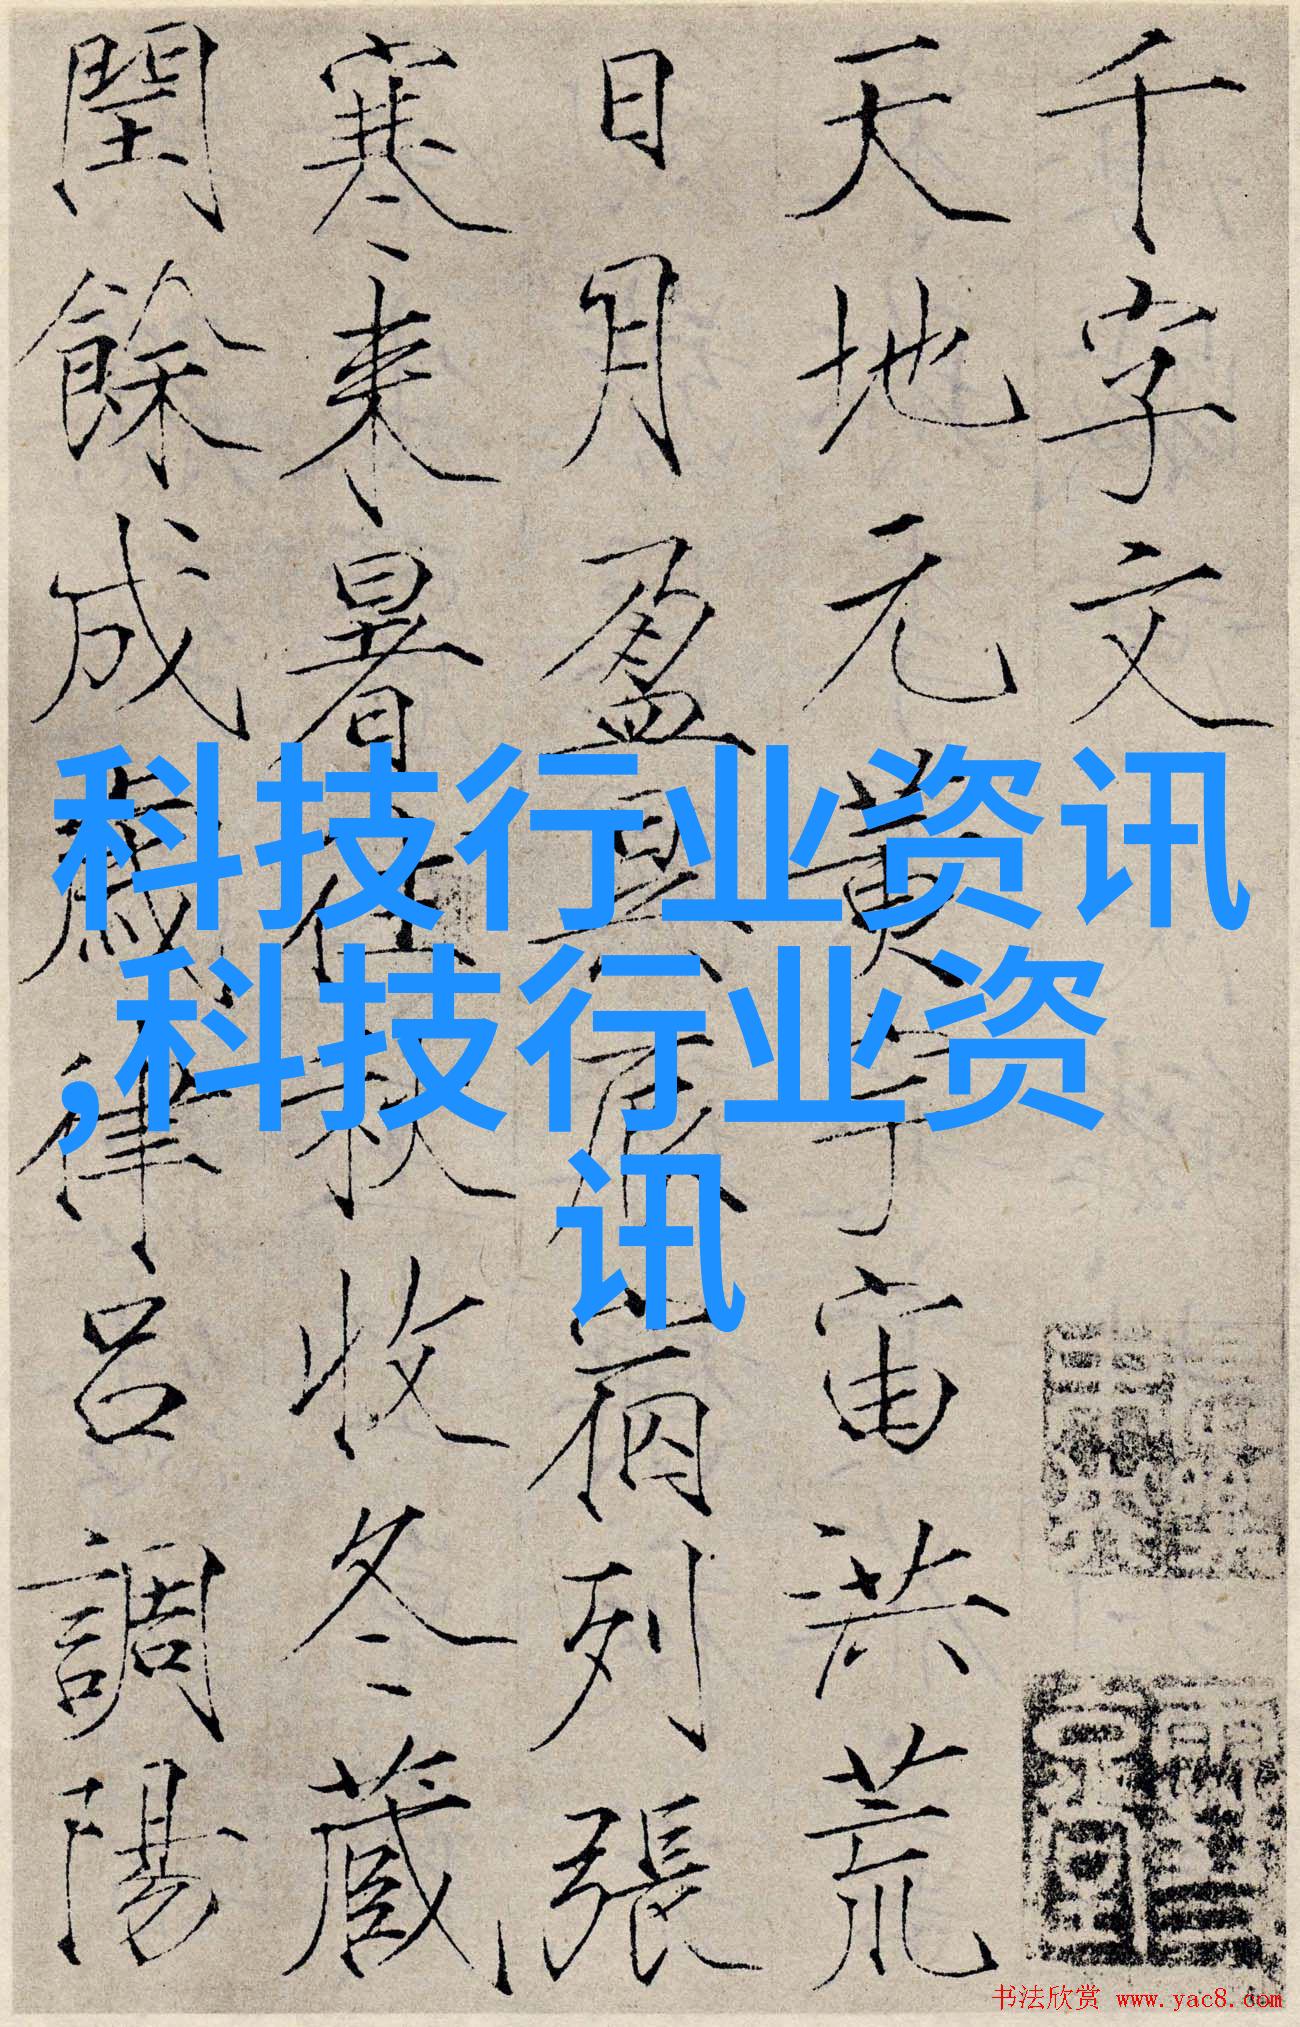 千字文
天地元黄宇宙洪荒
日月盈昃辰宿列張
寒来暑往秋收冬藏
閏餘成歲律呂調陽
科技行业资讯
,科技行业资
讯
书法欣赏 www.yac8.com